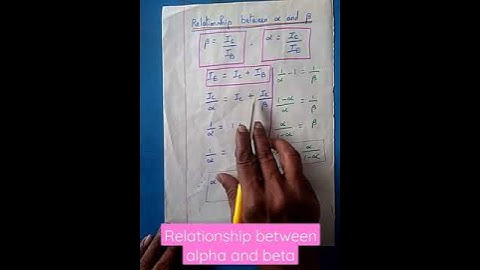 Relationship between α and β
β = I_C / I_B , α = I_C / I_B
I_E = I_C + I_B
I_C / α = I_C + I_C / β
1 / α = 1 +
1 / α =
α
1 / α - 1 = 1 / β
1-α / α = 1 / β
α / 1-α = β
α / 1-α
Relationship between
alpha and beta